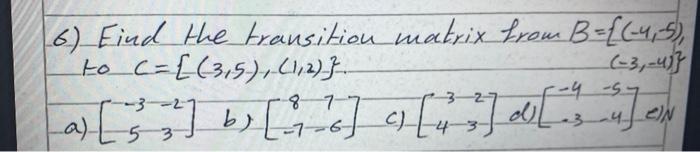 6) Find the transition matrix from B={(-4,-5),
(-3,-4)}
to C={(3,5),(1,2)}.
a) [-3 -2 5 3] b) [8 7 -7 -6] c) [3 2 4 3] d) [-4 -5 -3 -4] e) N